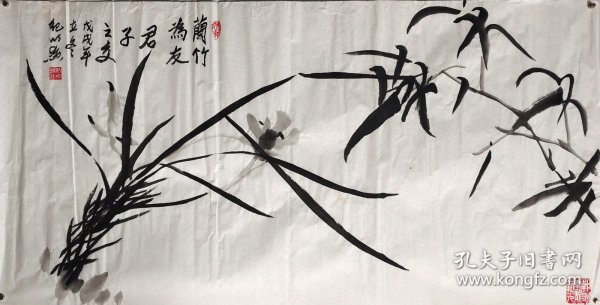 蘭竹
為友
君
子
之交
戊戌年
立冬
孔夫子旧书网
www.kongfz.com